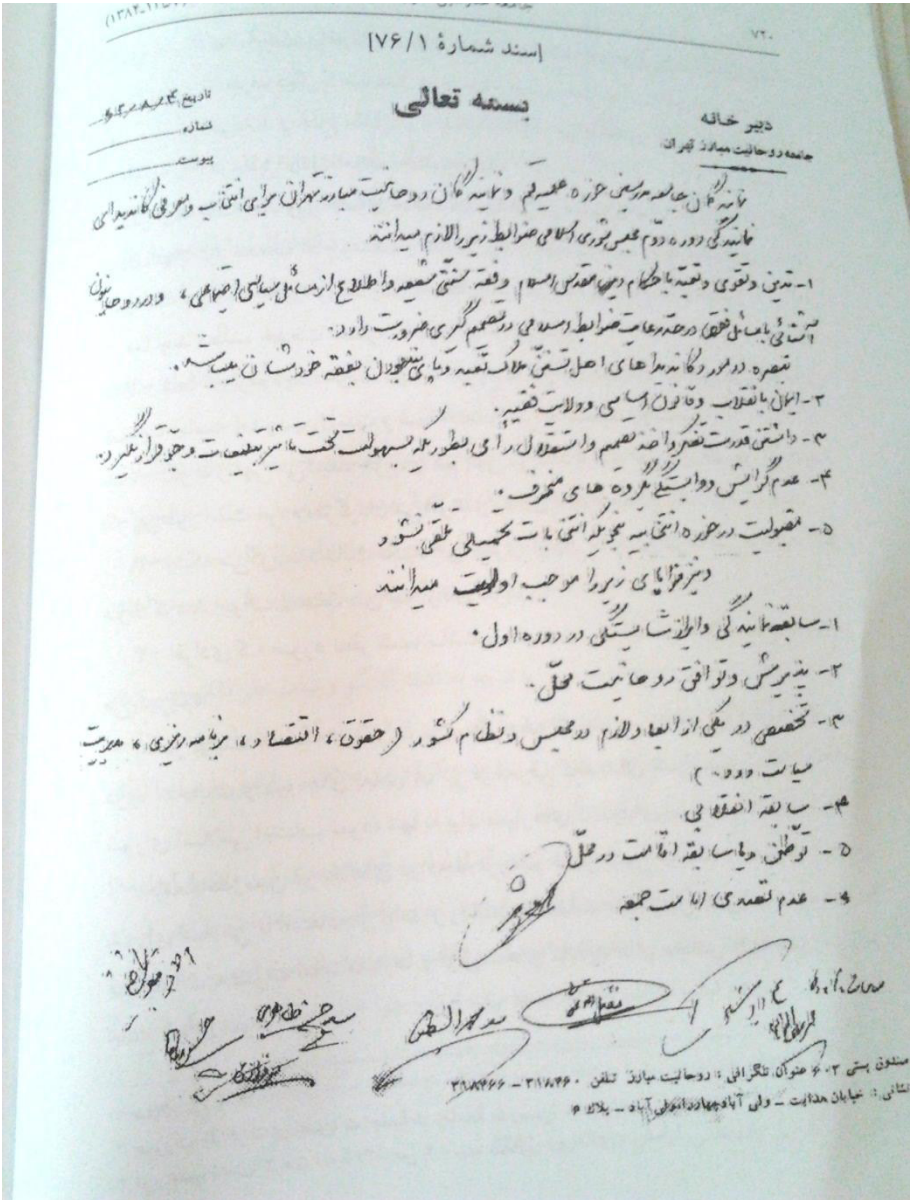 ۷۲۰
[سند شمارهٔ ۷۶/۱]
بسمه تعالی
دبیر خانه
جامعه روحانیت مبارز تهران
تاریخ
شماره
پیوست
نمایندگان جامعه مدرسین حوزه علمیه قم و نمایندگان روحانیت مبارز تهران برای انتخاب و معرفی کاندیداهای
نمایندگی دوره دوم مجلس شورای اسلامی ضوابط زیر را لازم میدانند
۱- تدین و تقوی و تقید باحکام دین مقدس اسلام و فقه سنتی شیعه و اطلاع از مسائل سیاسی اجتماعی، و در روحانیون
آشنائی با مسائل فقهی در حد رعایت ضوابط اسلامی در تصمیم گیری ضرورت دارد.
تبصره در مورد کاندیداهای اهل تسنن ملاک تقید و پای بند بودن بفقه خودشان میباشد.
۲- ایمان بانقلاب و قانون اساسی و ولایت فقیه.
۳- داشتن قدرت تفکر و اخذ تصمیم و استقلال رأی بطوریکه بسهولت تحت تأثیر تبلیغات و جو قرار نگیرد.
۴- عدم گرایش و وابستگی بگروه های منحرف.
۵- مقبولیت در حوزه انتخابیه بنحویکه انتخابات تحمیلی تلقی نشود
و نیز مزایای زیر را موجب اولویت میدانند
۱- سابقه نمایندگی و ابراز شایستگی در دوره اول.
۲- پذیرش و توافق روحانیت محلّ.
۳- تخصص در یکی از ابعاد لازم در مجلس و نظام کشور (حقوق، اقتصاد، برنامه ریزی، مدیریت
سیاست و...)
۴- سابقه انقلابی
۵- توطن و یا سابقه اقامت در محلّ
۶- عدم تصدی امامت جمعه
صندوق پستی ۶۰۲ عنوان تلگرافی: روحانیت مبارز تلفن ۳۱۸۴۶۰ - ۳۱۸۴۶۶
نشانی: خیابان هدایت - ولی آباد چهارراه ولی آباد - پلاک